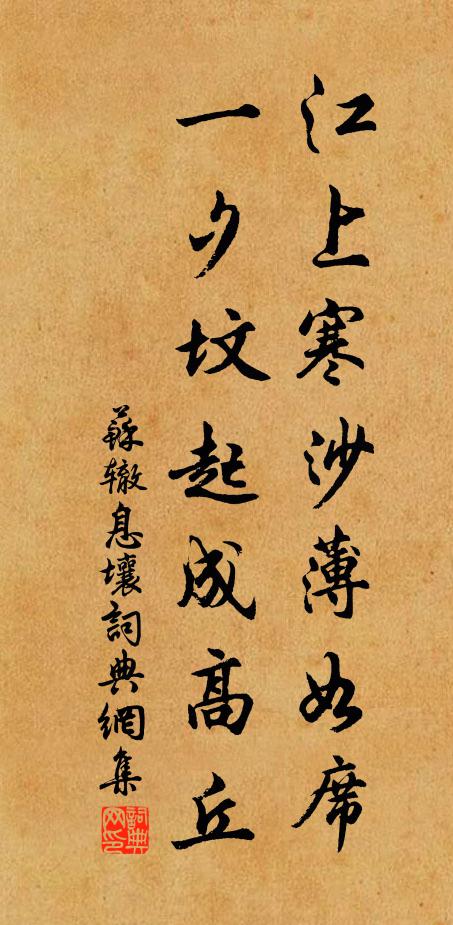 江上寒沙薄如席
一夕坟起成高丘
蘇辙息壤詞典網集
詞典网印